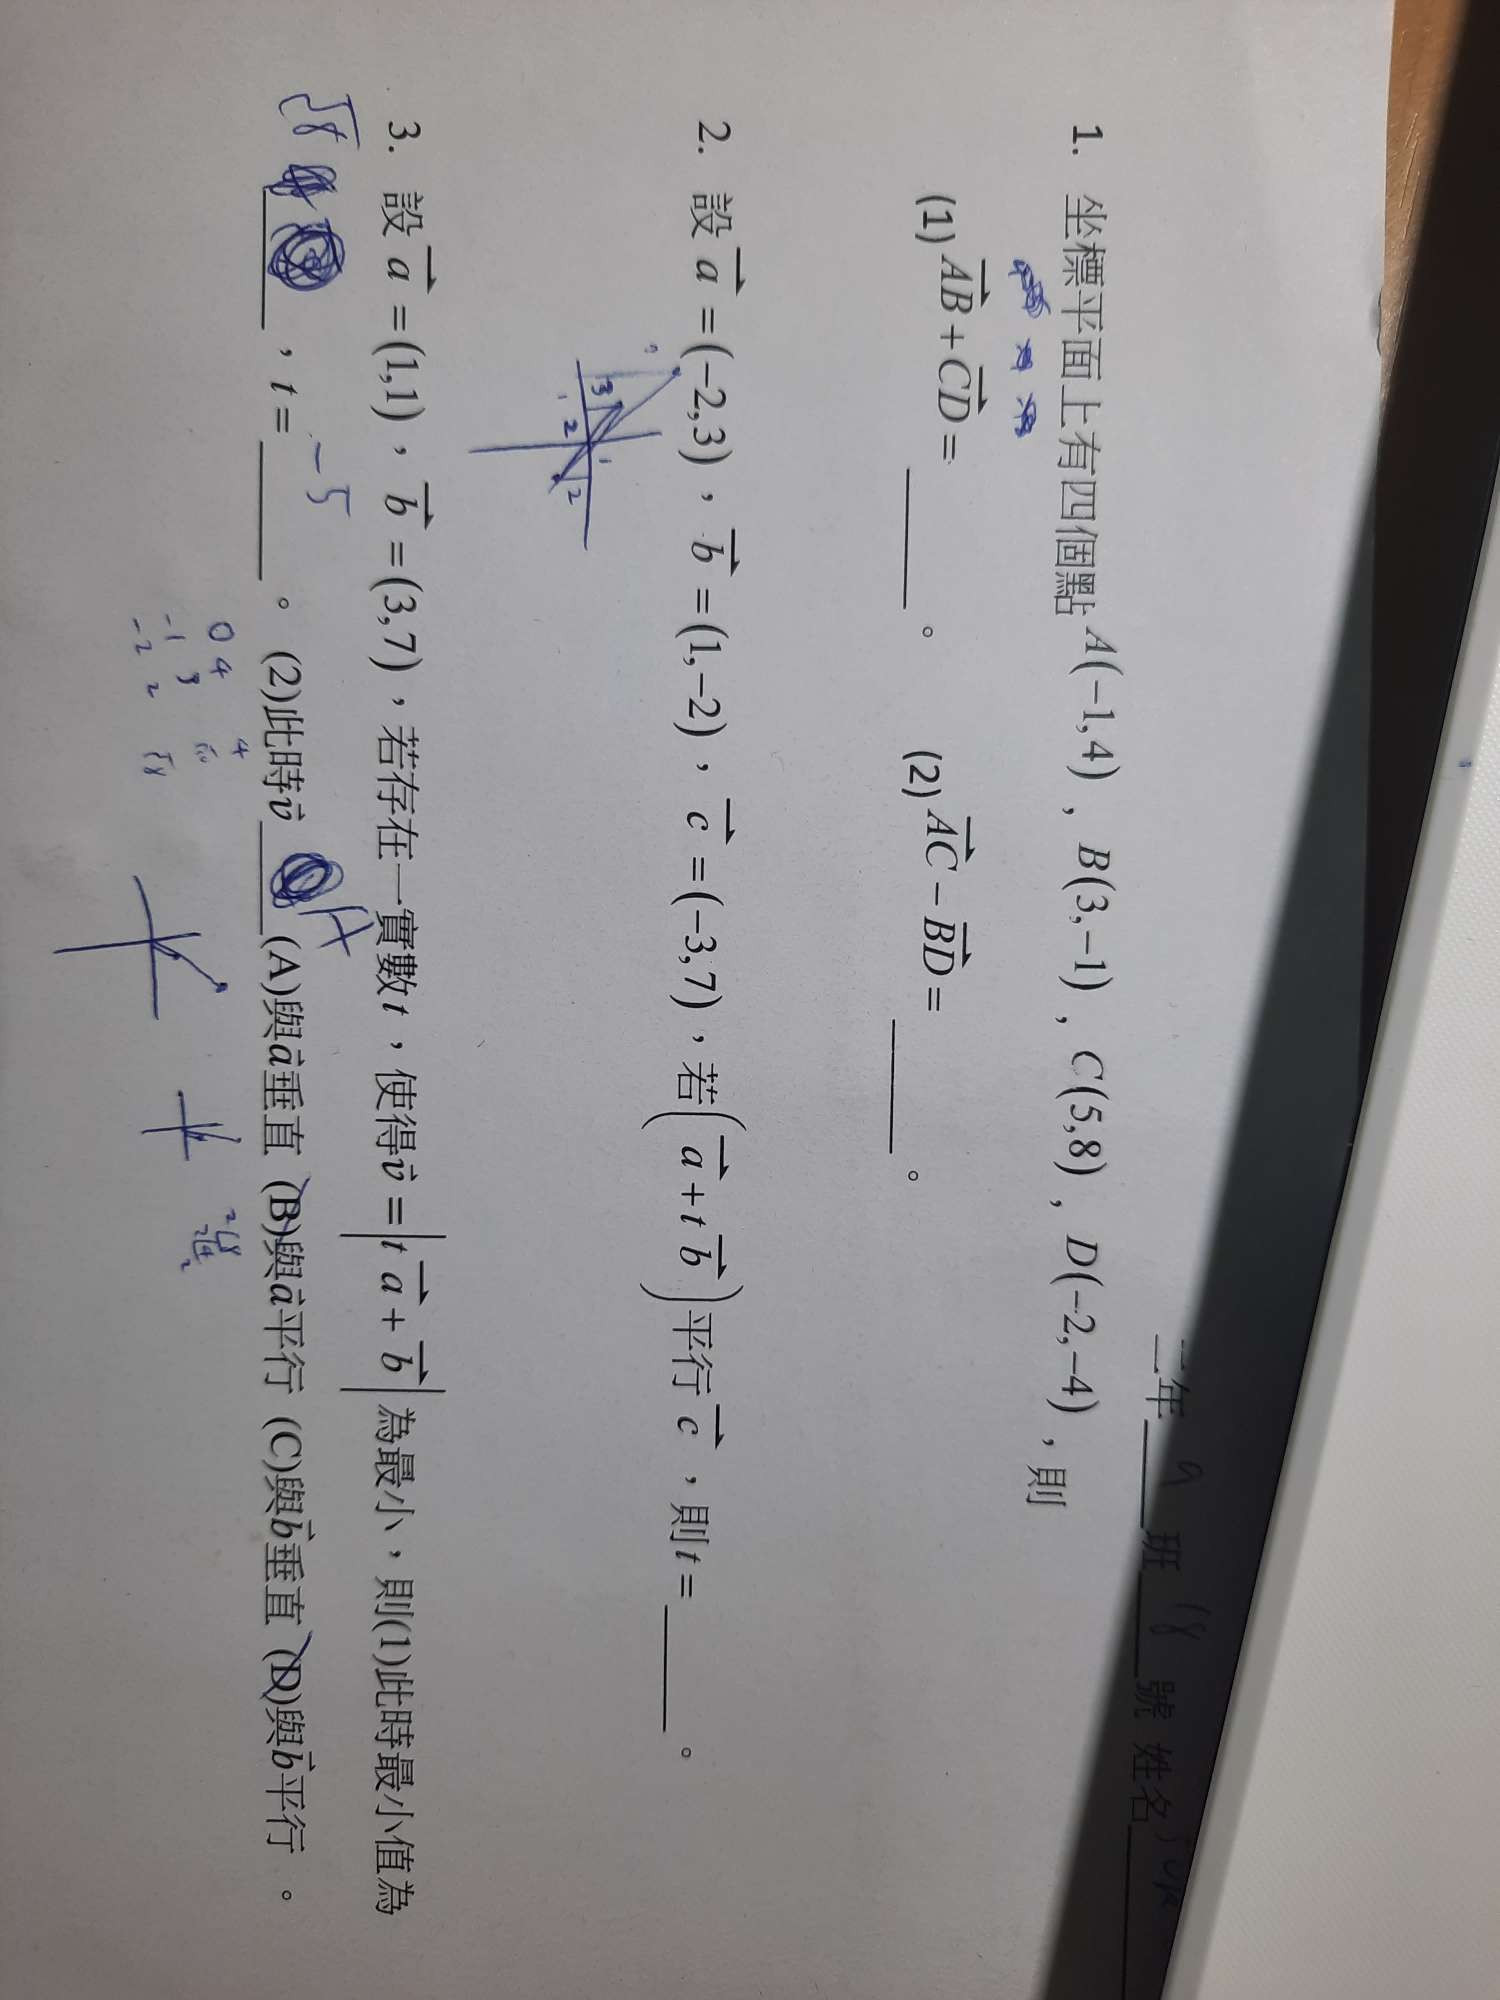 二年 9 班 18 號 姓名
1. 坐標平面上有四個點A(−1,4)，B(3,−1)，C(5,8)，D(−2,−4)，則
(1) AB + CD = ______。 (2) AC − BD = ______。
2. 設 a = (−2,3)，b = (1,−2)，c = (−3,7)，若(a + t b)平行 c，則 t = ______。
3 2 1 2
3. 設 a = (1,1)，b = (3,7)，若存在一實數 t，使得 v = |t a + b| 為最小，則(1)此時最小值為
√8 ______，t = −5 ______。 (2)此時 v ______ A (A)與a垂直 (B)與a平行 (C)與b垂直 (D)與b平行 。
0 4 4
−1 3 √10
−2 2 √8